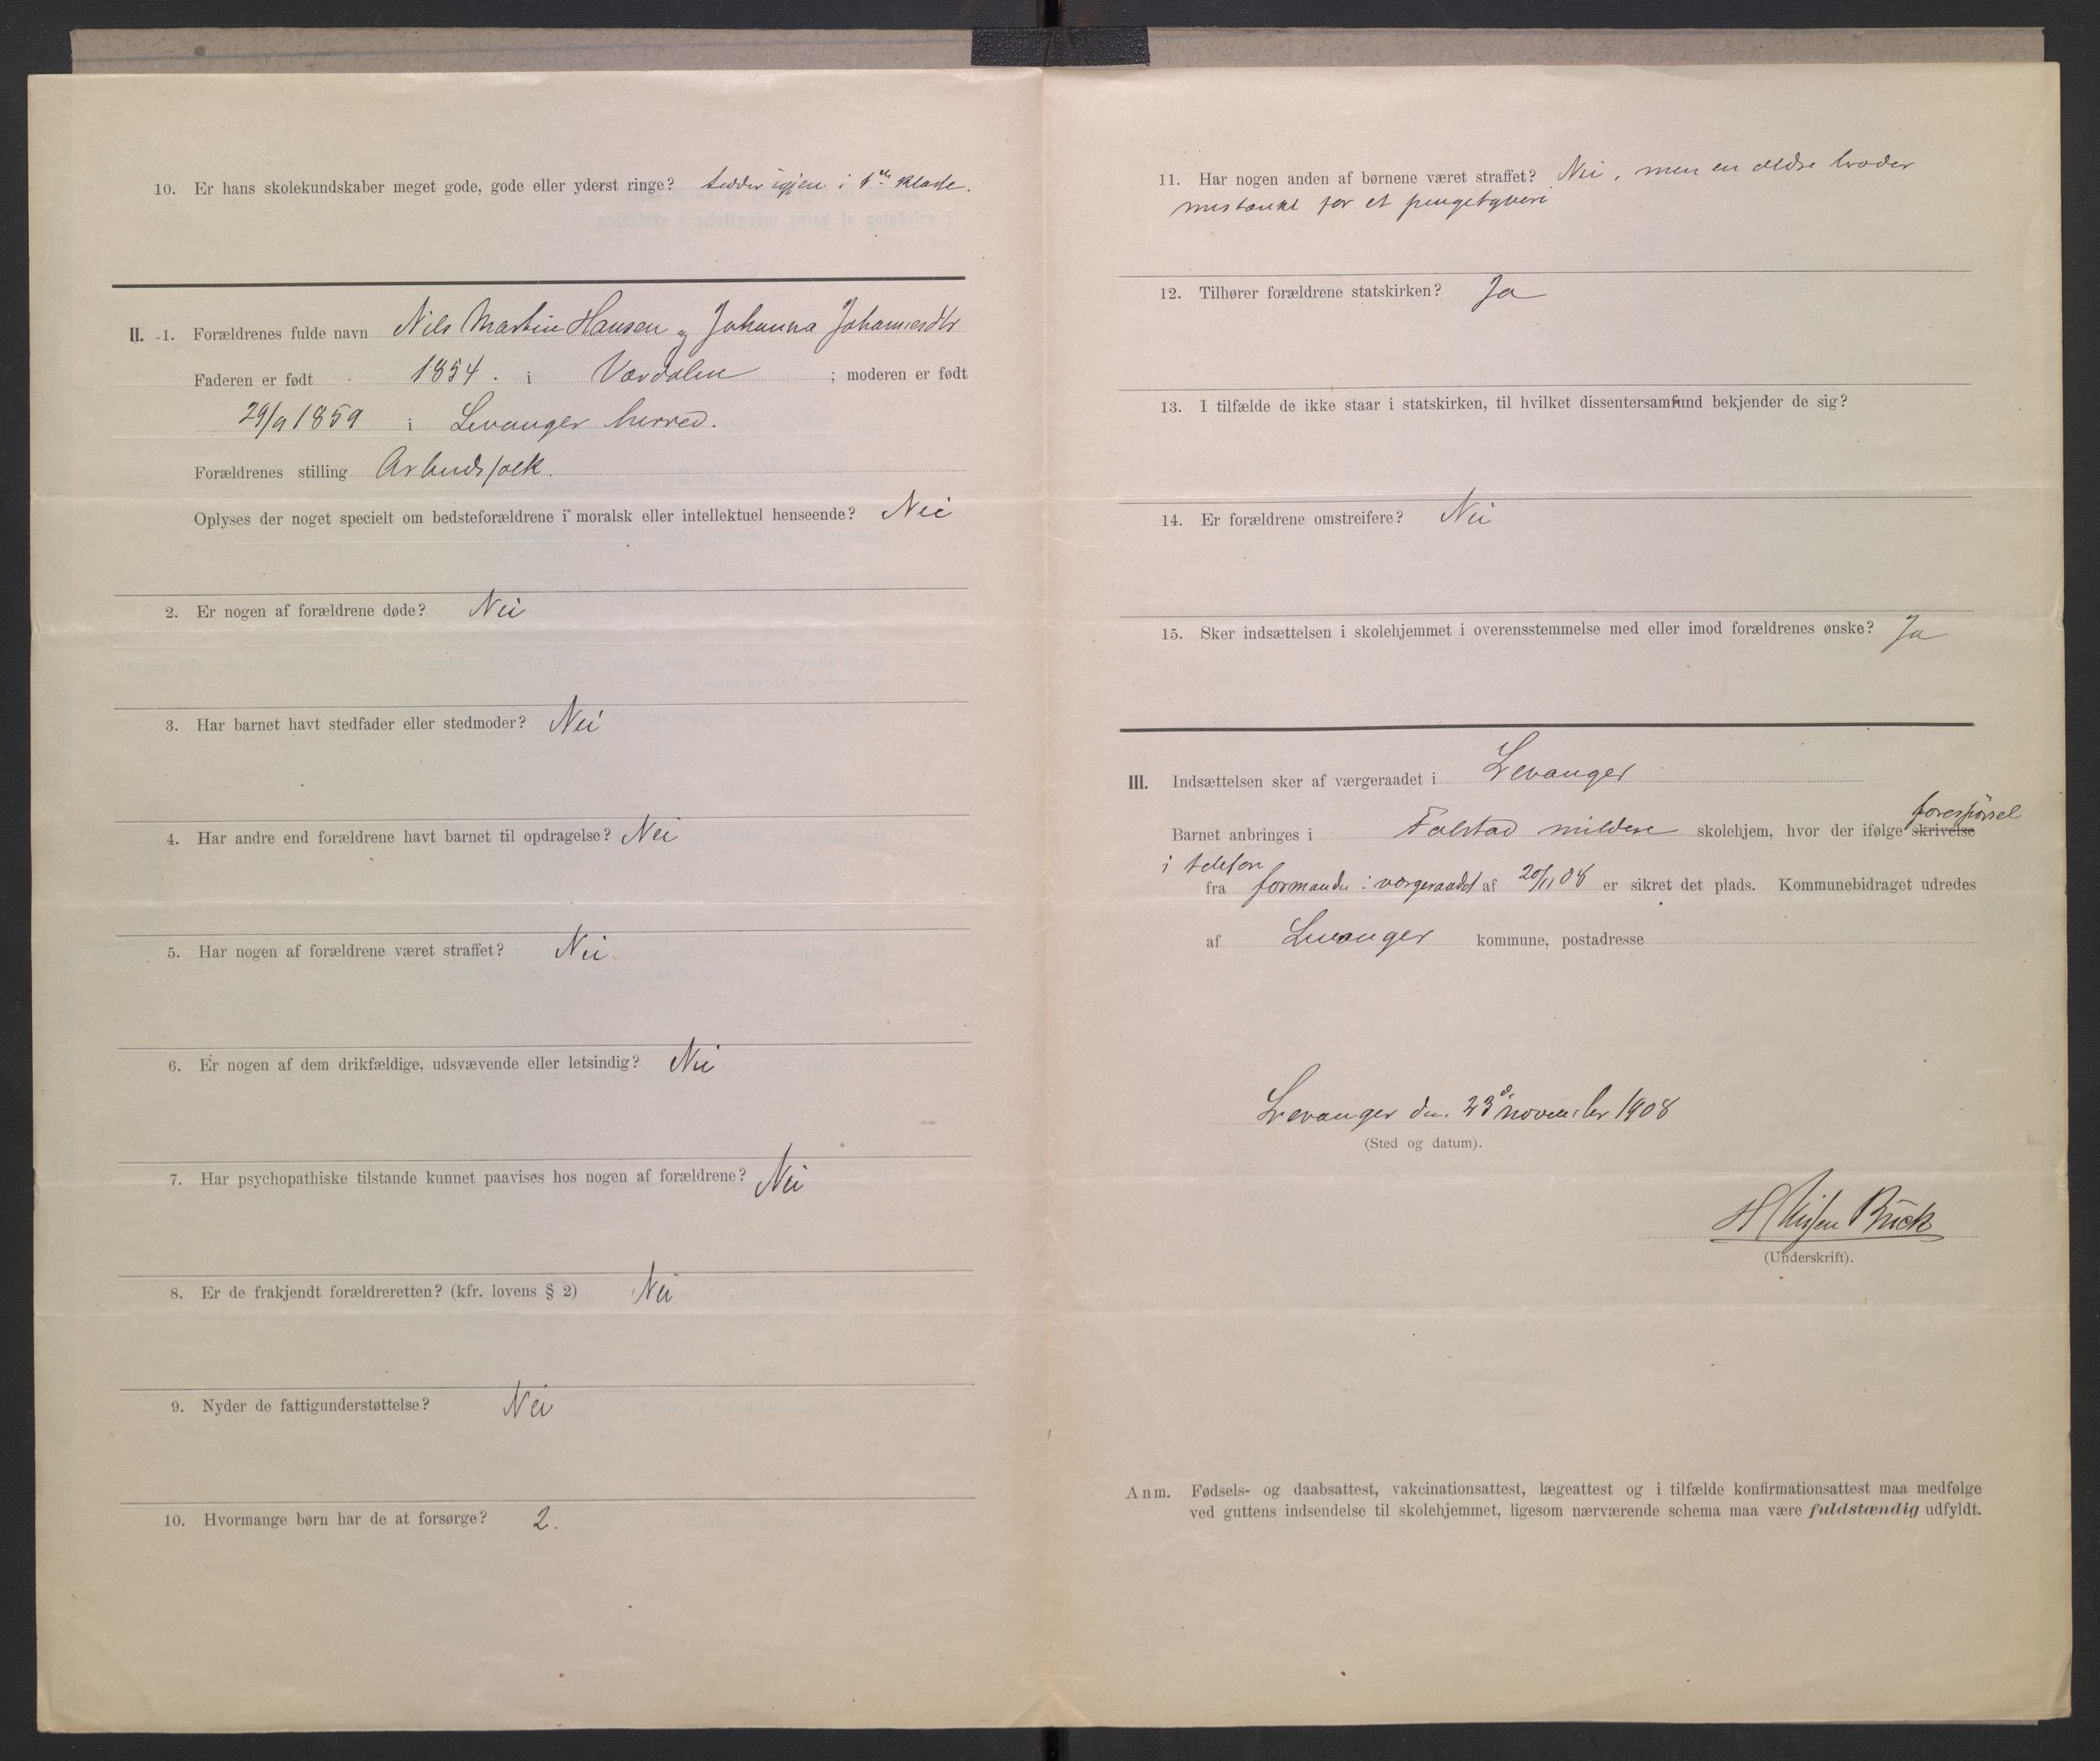 10. Er hans skolekundskaber meget gode, gode eller yderst ringe? sidder igjen i 1ste klasse.
II. 1. Forældrenes fulde navn Nils Martin Hansen og Johanna Johannesdtr
Faderen er født 1854. i Værdalen ; moderen er født
29/9 1859 i Levanger herred.
Forældrenes stilling Arbeidsfolk.
Oplyses der noget specielt om bedsteforældrene i moralsk eller intellektuel henseende? Nei
2. Er nogen af forældrene døde? Nei
3. Har barnet havt stedfader eller stedmoder? Nei
4. Har andre end forældrene havt barnet til opdragelse? Nei
5. Har nogen af forældrene været straffet? Nei
6. Er nogen af dem drikfældige, udsvævende eller letsindig? Nei
7. Har psychopathiske tilstande kunnet paavises hos nogen af forældrene? Nei
8. Er de frakjendt forældreretten? (kfr. lovens § 2) Nei
9. Nyder de fattigunderstøttelse? Nei
10. Hvormange børn har de at forsørge? 2.
11. Har nogen anden af børnene været straffet? Nei, men en ældre broder
mistænkt for et pengetyveri
12. Tilhører forældrene statskirken? Ja
13. I tilfælde de ikke staar i statskirken, til hvilket dissentersamfund bekjender de sig?
14. Er forældrene omstreifere? Nei
15. Sker indsættelsen i skolehjemmet i overensstemmelse med eller imod forældrenes ønske? Ja
III. Indsættelsen sker af værgeraadet i Levanger
forespørsel
Barnet anbringes i Falstad mildere skolehjem, hvor der ifølge skrivelse
i telefon
fra formanden i værgeraadet af 20/11 08 er sikret det plads. Kommunebidraget udredes
af Levanger kommune, postadresse
Levanger den 23de november 1908
(Sted og datum).
Brick
(Underskrift).
Anm. Fødsels- og daabsattest, vakcinationsattest, lægeattest og i tilfælde konfirmationsattest maa medfølge
ved guttens indsendelse til skolehjemmet, ligesom nærværende schema maa være fuldstændig udfyldt.